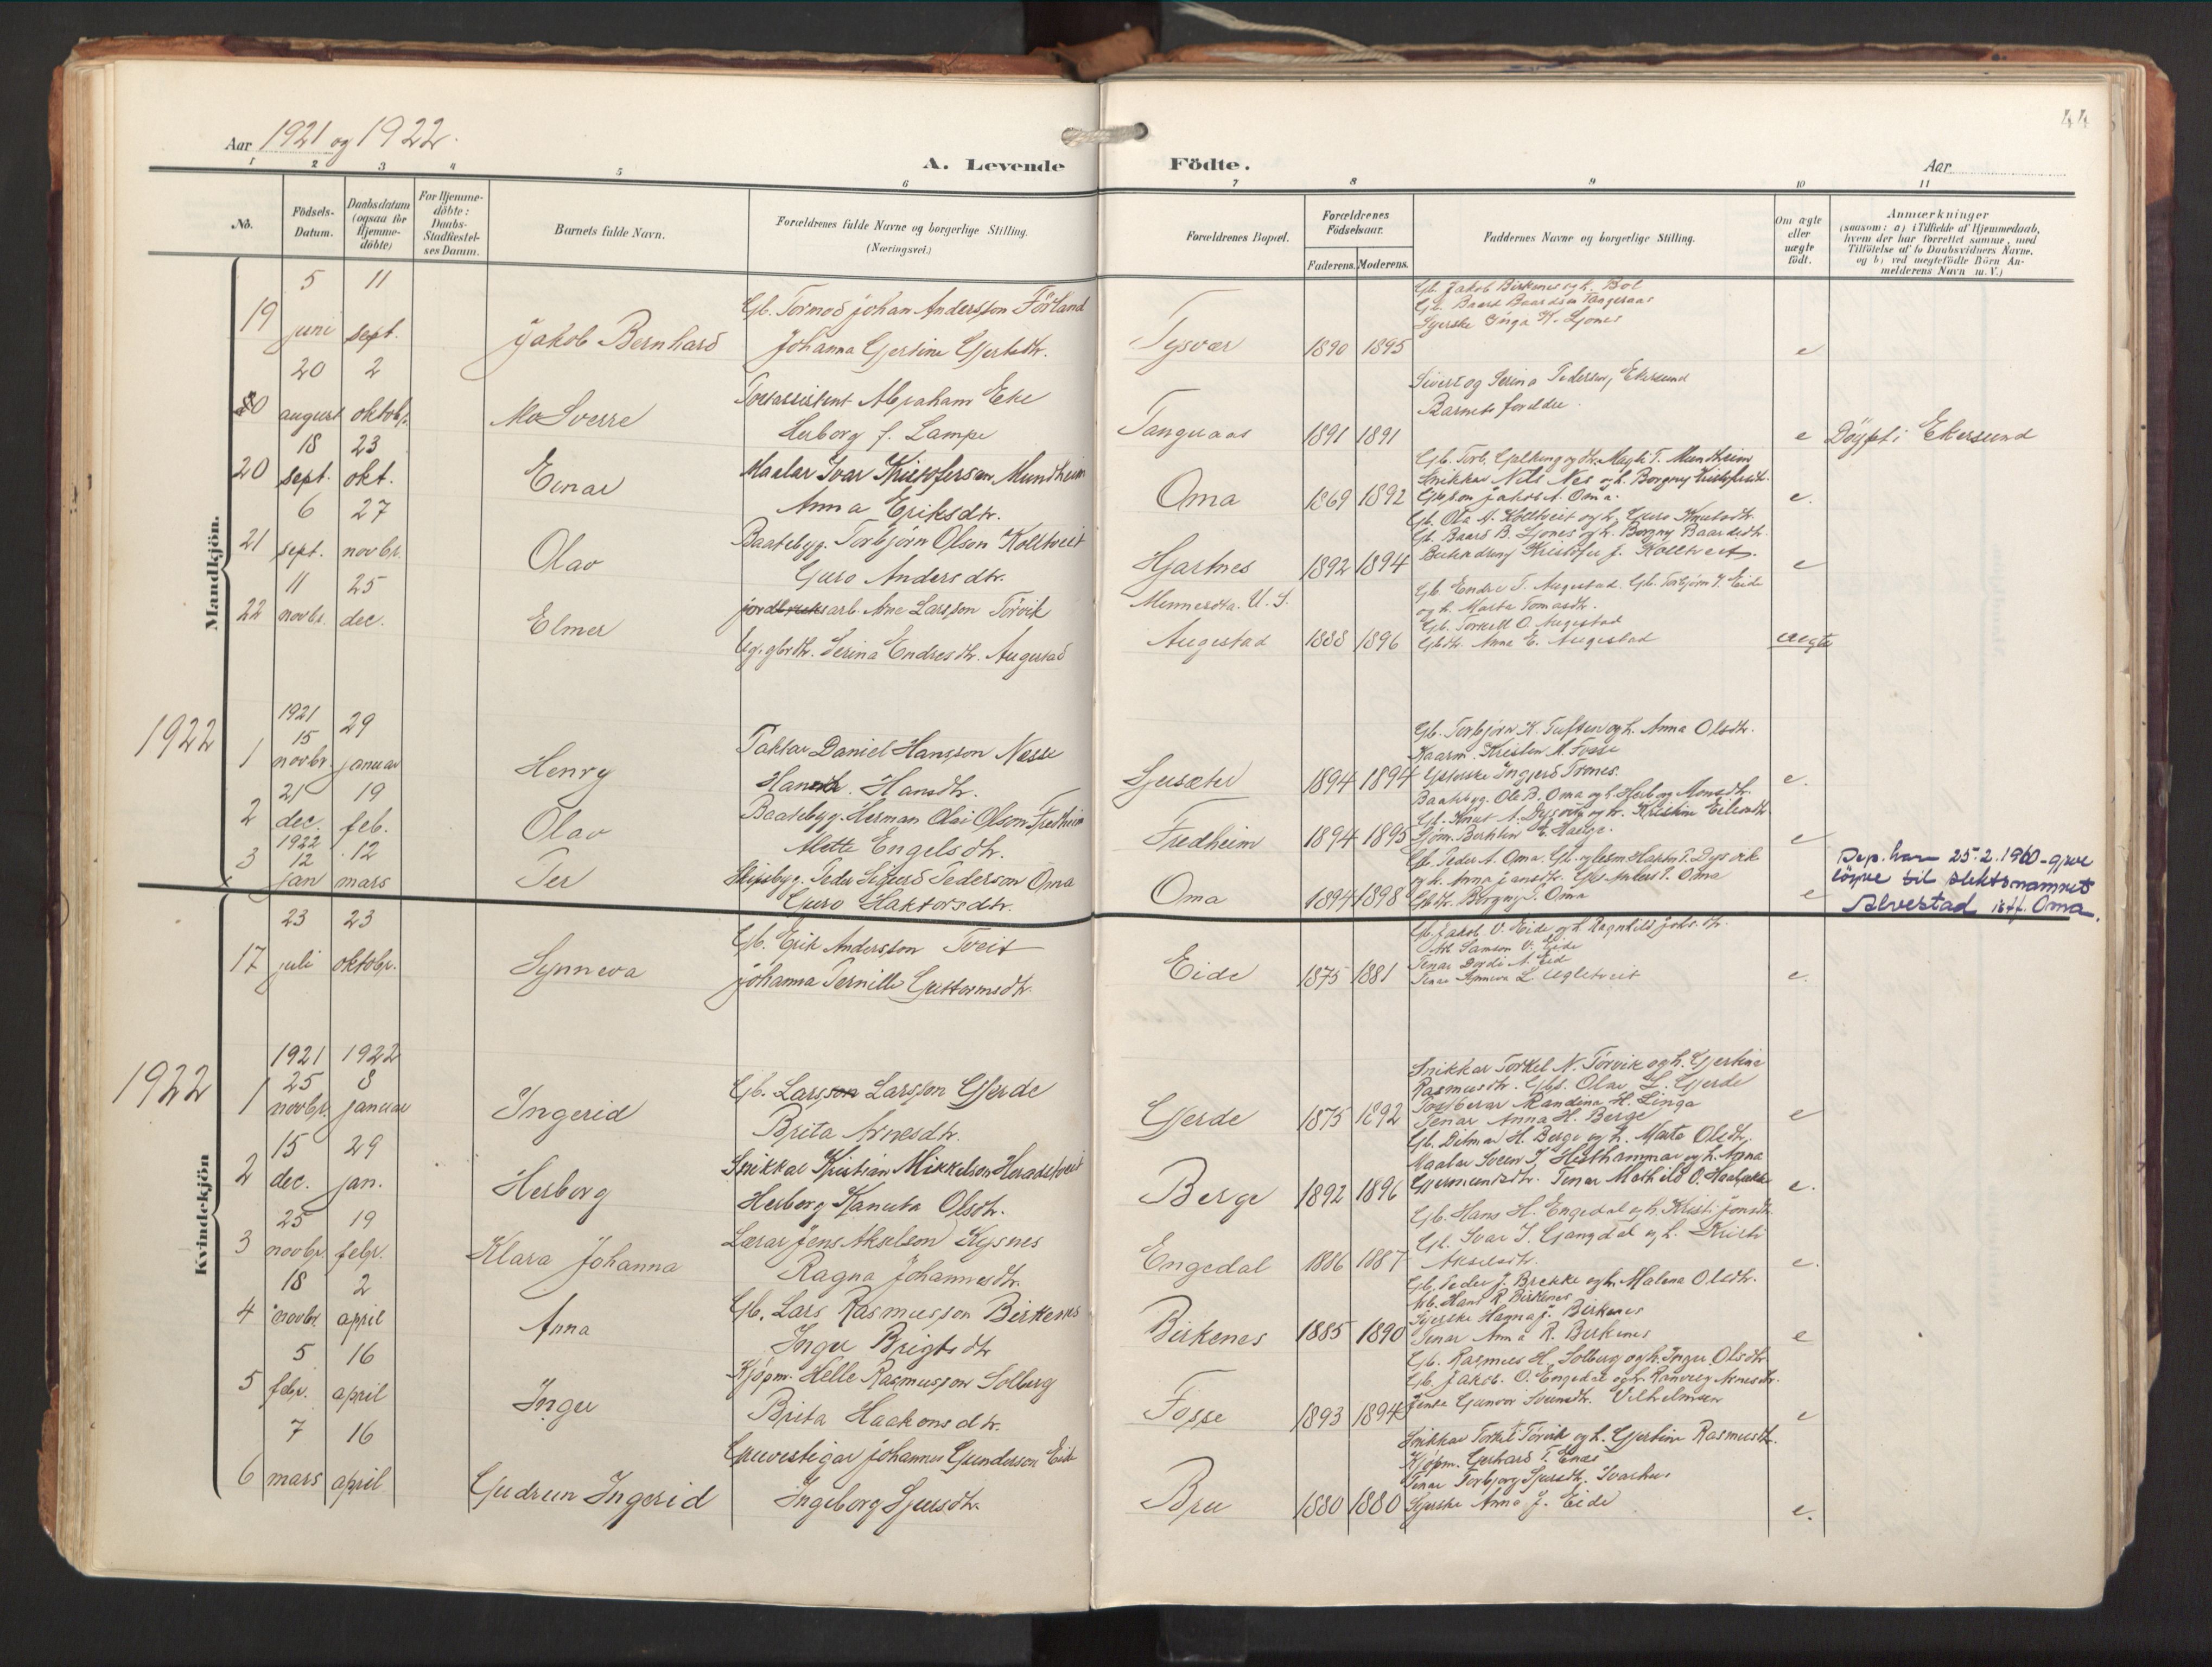 44
Aar 1921 og 1922.
A. Levende Födte.
Aar
1 2 3 4 5 6 7 8 9 10 11
No.
Födsels-Datum.
Daabsdatum (ogsaa for Hjemme-döbte)
For Hjemme-döbte: Daabs-Stadfæstel-ses Datum.
Barnets fulde Navn.
Forældrenes fulde Navne og borgerlige Stilling.
(Næringsvei.)
Forældrenes Bopæl.
Forældrenes Födselsaar.
Faderens. Moderens.
Faddernes Navne og borgerlige Stilling.
Om ægte eller uægte födt.
Anmærkninger
(saasom: a) i Tilfælde af Hjemmedaab, hvem der har forrettet samme, med Tilföielse af to Daabsvidners Navne, og b) ved uægtefödte Börn An-melderens Navn m. V.)
Mandkjön.
19 5 juni 11 sept. Jakob Bernhard
Gb. Tormod Johan Andersson Förland
Johanna Gjertine Gjertsdtr.
Tysvær 1890 1895
Gb. Jakob Birkenes og h. Bol
Gb. Baard Baardson Tangeraas
Syerske Inga K. Ljones
e
20 20 august 2 oktobr. Sverre
Abraham Eke
Herborg f. Lampe
Tangeraas 1891 1891
Sivert og Serina Pedersen, Ekersund
Barnets foreldre.
e Döypt i Ekersund
20 18 sept. 23 okt. Einar
Maalar Ivar Kristofersen Mundheim
Anna Eriksdtr.
Oma 1869 1892
Snikkar Nils Nes og h. Borgny
Jakob A. Oma.
e.
21 6 sept. 27 novbr. Olav
Baatsbyg. Torbjörn Olson Kolltveit
Guro Andersdtr.
Hjartnes 1892 1894
Gb. Ola N. Kolltveit og h. Guro Knutsdtr.
Gb. Baard B. Ljones og h. Borgny Baardsdtr.
Kristofer J. Kolltveit.
e
22 11 novbr. 25 dec. Elmer
jordbruksarb. Arne Larsson Törvik
Ug. gbrdtr. Serina Endresdtr. Augestad
Minnesota. U.S.
Augestad 1888 1896
Gb. Endre T. Augestad. Gb. Torbjörn T. Eide
og h. Marta Tomasdtr.
Gb. Torkell O. Augestad
Gbdtr. Anna E. Augestad
uegte
1922
1 1921 15 novbr. 29 januar Henry
Daniel Hansson Nesse
Hansdtr.
Ljusæter 1894 1894
Gb. Torbjörn K. Tuften og h. Anna Olsdtr.
Kaarm. Kristen M. Fosse
Ingjerd Trones.
e.
2 21 dec. 19 feb. Olav
Baatsbyg. Herman Olai Olson Fredheim
Alette Engelsdtr.
Fredheim 1894 1895
Baatsbyg. Ole B. Oma og h. Herborg Monsdtr.
Gb. Knut A. Dysvik og h. Kristine Eilevsdtr.
E. Hauge.
e
3 1922 12 jan 12 mars Per
Skipsbyg. Peder Sigurd Pederson Oma
Guro Haktorsdtr.
Oma 1894 1898
Gb. Peder A. Oma. Dysvik
og h. Anna Jansdtr. Anders P. Oma
Gbdtr. Borgny P. Oma
e
Dep. har 25.2.1960 gjeve
löyve til slektsnamnet
Alvestad istf. Oma.
Kvindekjön
17 23 juli 23 oktobr. Synneva
Gb. Erik Andersson Tveit
Johanna Pernille Guttormsdtr.
Eide 1875 1881
Gb. Jakob V. Eide og h. Ragnhild Jakobsdtr.
Samson V. Eide
Tenar Dordi N. Eid
Tenar Synneva L. Ugletveit
e.
1922
1 1921 25 novbr. 1922 8 januar Ingerid
Gb. Larsson Larsson Gjerde
Brita Arnesdtr.
Gjerde 1875 1892
Snikkar Torkel N. Törvik og h. Gjertine
Rasmusdtr. Gbs. Olav L. Gjerde
Postberar Randina H. Linga
Tenar Anna H. Berge
e
2 15 dec. 29 jan. Herborg
Snikkar Kristian Mikkelson Heradstveit
Herborg Kanuta Olsdtr.
Berge 1892 1896
Gb. Ditmar H. Berge og h. Marta Olsdtr.
Maalar Sveen og h. Anna
Gjermundsdtr. Tenar Mathild O.
e.
3 25 novbr. 19 febr. Klara Johanna
Lærar Jens Akselson Kysnes
Ragna Johannesdtr.
Engedal 1886 1887
Gb. Hans H. Engedal og h. Kristi Jonsdtr.
Gb. Ivar og h. Kristi
Akselsdtr.
e.
4 18 novbr 2 april Anna
Gb. Lars Rasmusson Birkenes
Inger Brigtsdtr
Birkenes 1885 1890
Gb. Peder J. Brekke og h. Malena Olsdtr.
Gb. Hans R. Birkenes
Syerske Hanna J. Birkenes
Tenar Anna R. Birkenes
e
5 5 febr. 16 april Inger
Kjöpm. Helle Rasmusson Solberg
Brita Haakonsdtr.
Fosse 1893 1894
Gb. Rasmus H. Solberg og h. Inger Olsdtr.
Gb. Jakob O. Engedal og h. Ranveig Arnesdtr.
Jente Gunvor Vilhelmsen
e
6 7 mars 16 april Gudrun Ingerid
Johannes Gunderson Eide
Ingeborg Sjursdtr.
Bru 1880 1880
Snikkar Torkel Törvik og h. Gjertine Rasmusdtr.
Kjöpm. Gerhard T. Enes
Tenar Torbjörg Sjursdtr.
Syerske Anna J. Eide
e.